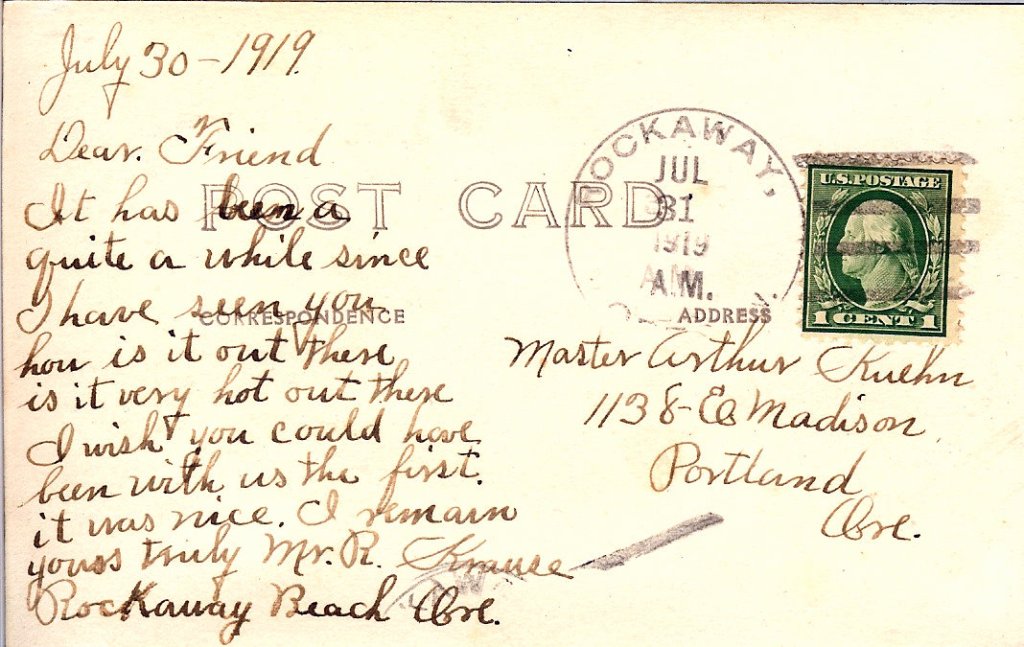 July 30-1919.
Dear. Friend
POST CARD
It has been a
quite a while since
I have seen you
CORRESPONDENCE
how is it out there
is it very hot out there
I wish you could have
been with us the first.
it was nice. I remain
yours truly Mr. R. Krause
Rockaway Beach Ore.
ROCKAWAY,
JUL
31
1919
A.M.
U.S. POSTAGE
1 CENT 1
ADDRESS
Master Arthur Kuehn
1138-Ea Madison
Portland
Ore.